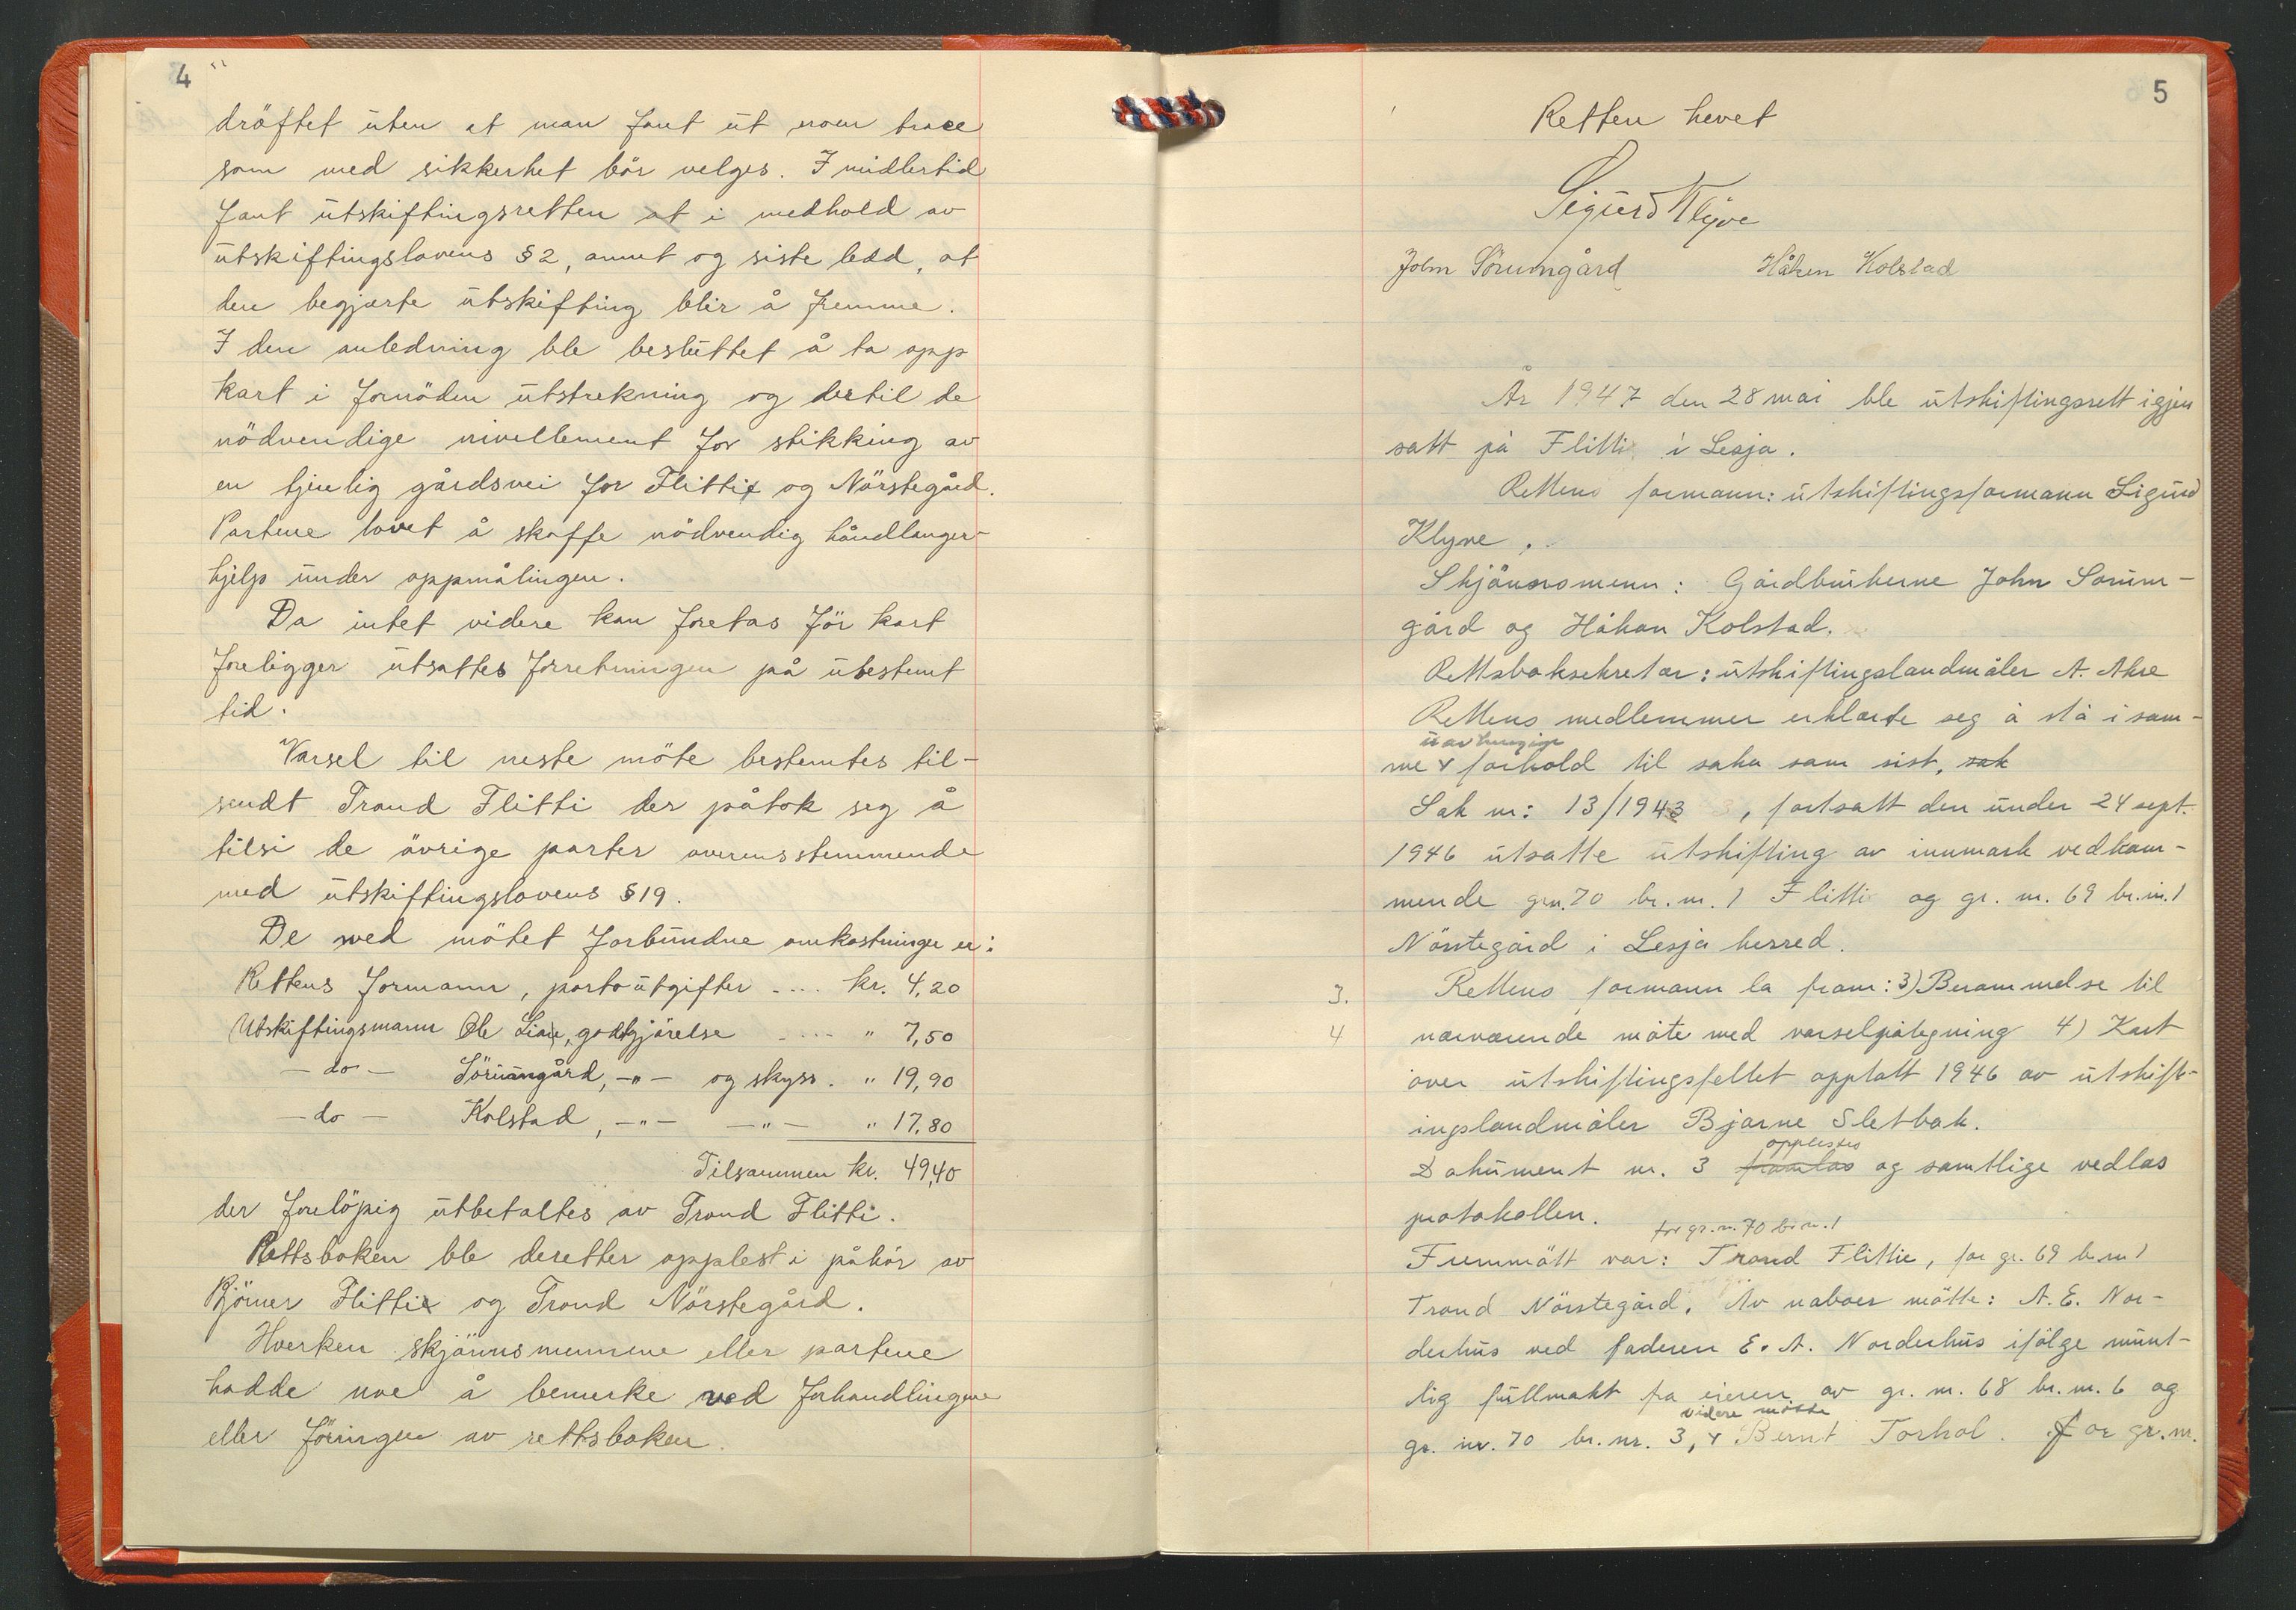 4
dröftet uten at man fant ut noen trace
som med sikkerhet bör velges. I midlertid
fant utskiftingsretten at i medhold av
utskiftingslovens § 2, annet og siste ledd, at
den begjærte utskifting blir å fremme.
I den anledning ble besluttet å ta opp
kart i fornöden utstrekning og dertil de
nödvendige nivellement for stikking av
en tjenlig gårdsvei for Flittie og Nörstegård.
Partene lovet å skaffe nödvendig håndlanger-
hjelp under oppmålingen.
Da intet videre kan foretas för kart
foreligger utsattes forretningen på ubestemt
tid.
Varsel til neste möte bestemtes til-
sendt Trond Flitti der påtok seg å
tilsi de övrige parter overensstemmende
med utskiftingslovens § 19.
De med mötet forbundne omkostninger er:
Rettens formann, portoutgifter .... kr. 4,20
Utskiftingsmann Ole Lian, godtgjörelse .... " 7,50
— do — Sörumgård, —"— og skyss. " 19,90
— do — Kolstad, —"— —"— " 17,80
Tilsammen kr. 49,40
der forelöpig utbetaltes av Trond Flitti.
Rettsboken ble deretter opplest i påhör av
Björner Flittie og Trond Nörstegård.
Hverken skjönnsmennene eller partene
hadde noe å bemerke ved forhandlingene
eller föringen av rettsboken.
5
Retten hevet
Sigurd Klyve
John Sörumgård Håken Kolstad
År 1947 den 28 mai ble utskiftingsrett igjen
satt på Flitti i Lesja.
Rettens formann: utskiftingsformann Sigurd
Klyve.
Skjönnsmenn: Gårdbrukerne John Sorum-
gård og Håkon Kolstad.
Rettsboksekretær: utskiftingslandmåler A. Akre
Rettens medlemmer erklærte seg å stå i sam-
uavhengige
me forhold til saka som sist. sak
Sak nr: 13/1943, fortsatt den under 24 sept.
1946 utsatte utskifting av innmark vedkom-
mende grn. 70 br. nr. 1 Flitti og gr. nr. 69 br. nr. 1
Nörstegård i Lesja herred.
3. Rettens formann la fram: 3) Berammelse til
4 nærværende möte med varselpåtegning 4) Kart
over utskiftingsfeltet opptatt 1946 av utskift-
ingslandmåler Bjarne Sletbak.
opplestes
Dokument nr. 3 framlas og samtlige vedlas
protokollen.
for gr. n. 70 br. n. 1
Fremmött var: Trond Flittie, for gr. 69 b. nr 1
Trond Nörstegård. Av naboer mötte: A. E. Nor-
derhus ved faderen E. A. Norderhus ifölge munt-
lig fullmakt fra eieren av gr. nr. 68 br. nr. 6 og
videre mötte
gr. nr. 70 br. nr. 3, Bernt Torhol. for gr. nr.